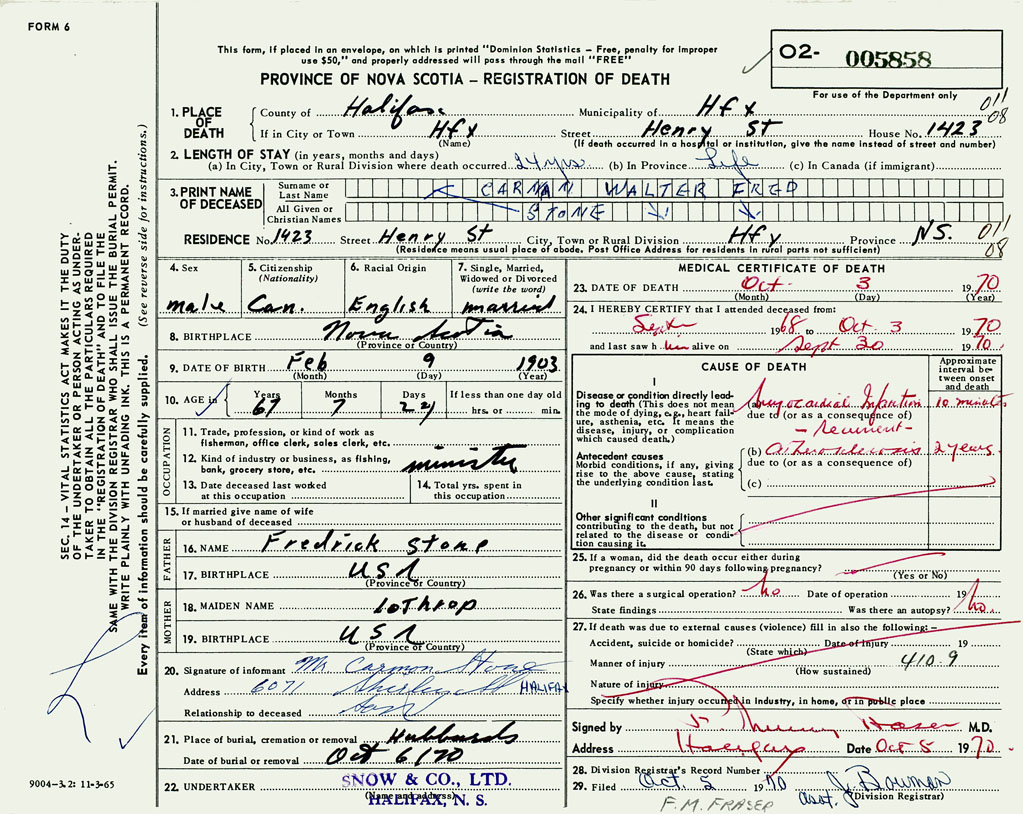 FORM 6
This form, if placed in an envelope, on which is printed "Dominion Statistics – Free, penalty for improper
use $50," and properly addressed will pass through the mail "FREE"
PROVINCE OF NOVA SCOTIA – REGISTRATION OF DEATH
O2- 005858
For use of the Department only
011
08
1. PLACE OF DEATH
County of Halifax Municipality of Hfx
If in City or Town Hfx Street Henry St House No. 1423
(Name) (If death occurred in a hospital or institution, give the name instead of street and number)
2. LENGTH OF STAY (in years, months and days)
(a) In City, Town or Rural Division where death occurred 24 yrs (b) In Province Life (c) In Canada (if immigrant)
3. PRINT NAME OF DECEASED
Surname or Last Name CARMAN WALTER FRED
All Given or Christian Names STONE
RESIDENCE No. 1423 Street Henry St City, Town or Rural Division Hfx Province NS.
(Residence means usual place of abode. Post Office Address for residents in rural parts not sufficient)
011
08
4. Sex male
5. Citizenship (Nationality) Can.
6. Racial Origin English
7. Single, Married, Widowed or Divorced (write the word) married
8. BIRTHPLACE Nova Scotia
(Province or Country)
9. DATE OF BIRTH Feb 9 1903
(Month) (Day) (Year)
10. AGE in Years 67 Months 7 Days 24 If less than one day old hrs. or min.
OCCUPATION
11. Trade, profession, or kind of work as fisherman, office clerk, sales clerk, etc.
12. Kind of industry or business, as fishing, bank, grocery store, etc. minister
13. Date deceased last worked at this occupation
14. Total yrs. spent in this occupation
15. If married give name of wife or husband of deceased
FATHER
16. NAME Fredrick Stone
17. BIRTHPLACE USA
(Province or Country)
MOTHER
18. MAIDEN NAME Lothrop
19. BIRTHPLACE USA
(Province or Country)
20. Signature of informant Mr Carmon Stone
Address 6071 Shirley St HALIFAX
Relationship to deceased Son
21. Place of burial, cremation or removal Hubbards
Date of burial or removal Oct 6/70
22. UNDERTAKER SNOW & CO., LTD.
(Name and address)
HALIFAX, N. S.
MEDICAL CERTIFICATE OF DEATH
23. DATE OF DEATH Oct 3 1970
(Month) (Day) (Year)
24. I HEREBY CERTIFY that I attended deceased from:
Sept 1968 to Oct. 3 1970
and last saw him alive on Sept 30 1970.
CAUSE OF DEATH
Approximate interval between onset and death
I
Disease or condition directly leading to death (This does not mean the mode of dying, e.g., heart failure, asthenia, etc. It means the disease, injury, or complication which caused death.)
(a) Myocardial Infarction 10 minutes
due to (or as a consequence of)
- recurrent -
Antecedent causes
Morbid conditions, if any, giving rise to the above cause, stating the underlying condition last.
(b) Atherosclerosis 2 years
due to (or as a consequence of)
(c)
II
Other significant conditions
contributing to the death, but not related to the disease or condition causing it.
25. If a woman, did the death occur either during
pregnancy or within 90 days following pregnancy?
(Yes or No)
26. Was there a surgical operation? No Date of operation 19
State findings Was there an autopsy? No.
27. If death was due to external causes (violence) fill in also the following: –
Accident, suicide or homicide? Date of Injury 19
(State which)
Manner of injury 410.9
(How sustained)
Nature of injury
Specify whether injury occurred in industry, in home, or in public place
Signed by M.D.
Address Halifax Date Oct 8 1970.
28. Division Registrar's Record Number
29. Filed Oct. 5 1970 asst. J Bowman
(Division Registrar)
F. M. FRASER
SEC. 14 – VITAL STATISTICS ACT MAKES IT THE DUTY
OF THE UNDERTAKER OR PERSON ACTING AS UNDER-
TAKER TO OBTAIN ALL THE PARTICULARS REQUIRED
IN THE "REGISTRATION OF DEATH" AND TO FILE THE
SAME WITH THE DIVISION REGISTRAR WHO SHALL ISSUE THE BURIAL PERMIT.
WRITE PLAINLY WITH UNFADING INK. THIS IS A PERMANENT RECORD.
Every item of information should be carefully supplied. (See reverse side for instructions.)
9004–3.2: 11-3-65